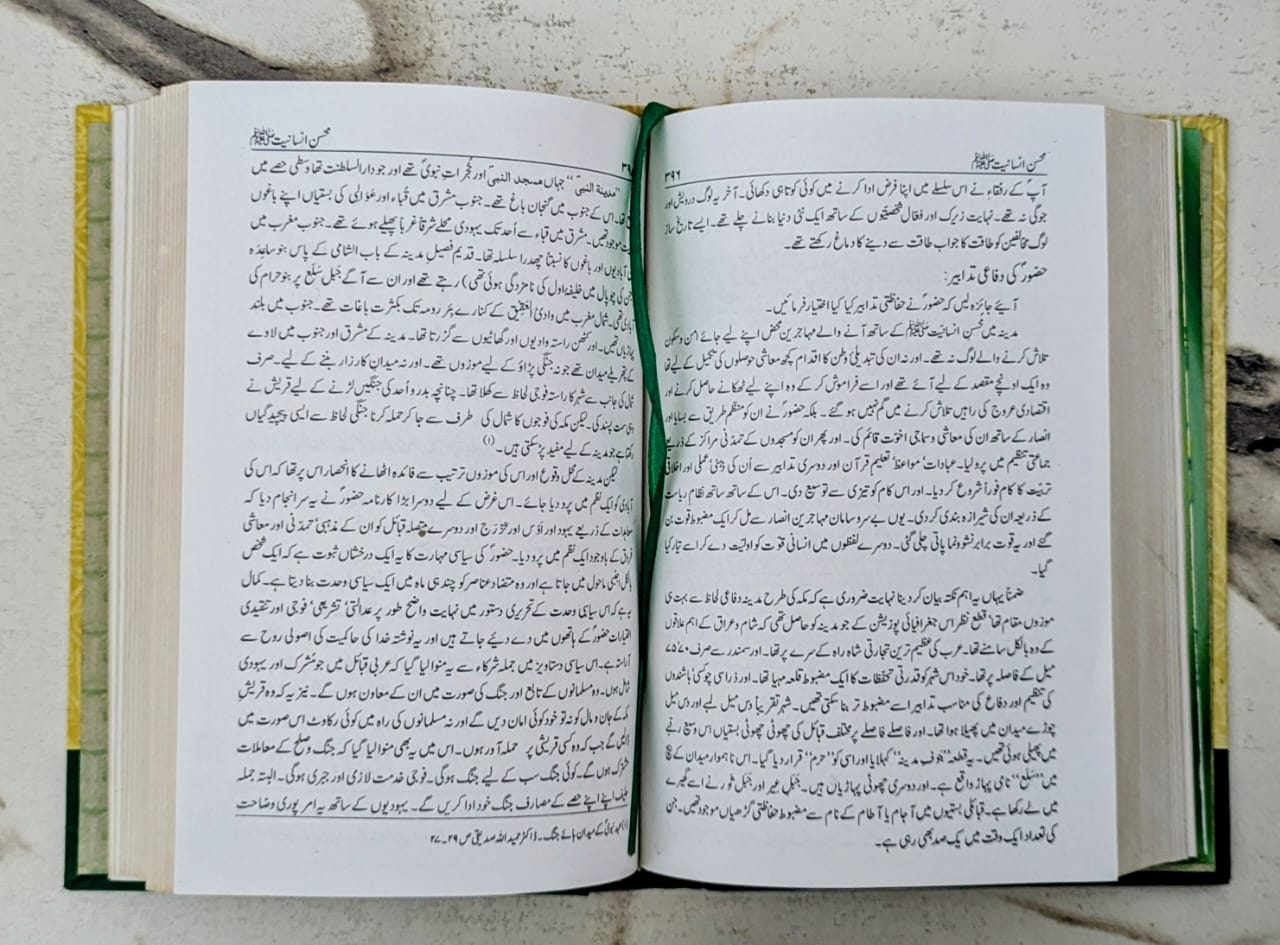 محسن انسانیت ﷺ
۳۹۶
آپؐ کے رفقاء نے اس سلسلے میں اپنا فرض ادا کرنے میں کوئی کوتاہی دکھائی۔ آخر یہ لوگ درویش اور
جوگی نہ تھے۔ نہایت زیرک اور فعال شخصیتوں کے ساتھ ایک نئی دنیا بنانے چلے تھے۔ ایسے تاریخ ساز
لوگ مخالفین کو طاقت کا جواب طاقت سے دینے کا دماغ رکھتے تھے۔
حضورؐ کی دفاعی تدابیر:
آئیے جائزہ لیں کہ حضورؐ نے حفاظتی تدابیر کیا کیا اختیار فرمائیں۔
مدینہ میں محسن انسانیت ﷺ کے ساتھ آنے والے مہاجرین محض اپنے لیے جائے امن و سکون
تلاش کرنے والے لوگ نہ تھے۔ اور نہ ان کی تبدیلیٔ وطن کا اقدام کچھ معاشی حوصلوں کی تکمیل کے لیے تھا
وہ ایک اونچے مقصد کے لیے آئے تھے اور اسے فراموش کر کے وہ اپنے لیے ٹھکانے حاصل کرنے اور
اقتصادی عروج کی راہیں تلاش کرنے میں گم نہیں ہو گئے۔ بلکہ حضورؐ نے ان کو منظم طریق سے بسایا اور
انصار کے ساتھ ان کی معاشی و سماجی اخوّت قائم کی۔ اور پھر ان کو مسجدوں کے تمدنی مراکز کے ذریعے
جماعتی تنظیم میں پرو لیا۔ عبادات' مواعظ' تعلیم قرآن اور دوسری تدابیر سے اُن کی ذہنی' عملی اور اخلاقی
تربیت کا کام فوراً شروع کر دیا۔ اور اس کام کو تیزی سے توسیع دی۔ اس کے ساتھ ساتھ نظام ریاست
کے ذریعہ ان کی شیرازہ بندی کر دی۔ یوں بے سروسامان مہاجرین انصار سے مل کر ایک مضبوط قوت بن
گئے اور یہ قوت برابر نشوونما پاتی چلی گئی۔ دوسرے لفظوں میں انسانی قوت کو اولیت دے کر اسے تیار کیا
گیا۔
ضمناً یہاں یہ اہم نکتہ بیان کر دینا نہایت ضروری ہے کہ مکہ کی طرح مدینہ دفاعی لحاظ سے بہت ہی
موزوں مقام تھا' قطع نظر اس جغرافیائی پوزیشن کے جو مدینہ کو حاصل تھی کہ شام و عراق کے اہم علاقوں
کے وہ بالکل سامنے تھا۔ عرب کی عظیم ترین تجارتی شاہ راہ کے سرے پر تھا۔ اور سمندر سے صرف ۷۰'۷۵
میل کے فاصلہ پر تھا۔ خود اس شہر کو قدرتی تحفظات کا ایک مضبوط قلعہ مہیا تھا۔ اور ذرا سی چوکسی' باشندوں
کی تنظیم اور دفاع کی مناسب تدابیر اسے مضبوط تر بنا سکتی تھیں۔ شہر تقریباً دس میل لمبے اور دس میل
چوڑے میدان میں پھیلا ہوا تھا۔ اور فاصلے فاصلے پر مختلف قبائل کی چھوٹی چھوٹی بستیاں اس وسیع رقبے
میں پھیلی ہوئی تھیں۔ یہ قطعہ "جوف مدینہ" کہلایا اور اسی کو "حرم" قرار دیا گیا۔ اس ناہموار میدان کے بیچ
میں "سَلع" نامی پہاڑ واقع ہے۔ اور دوسری چھوٹی پہاڑیاں ہیں۔ جبل عیر اور جبل ثور نے اسے گھیرے
میں لے رکھا ہے۔ قبائلی بستیوں میں آجام یا آطام کے نام سے مضبوط حفاظتی گڑھیاں موجود تھیں۔ جن
کی تعداد ایک وقت میں یک صد بھی رہی ہے۔
محسن انسانیت ﷺ
"مدینۃ النبیؐ" جہاں مسجد النبیؐ اور حُجُراتِ نبویؐ تھے اور جو دارالسلطنت تھا وسطی حصے میں
تھا۔ اس کے جنوب میں گنجان باغ تھے۔ جنوب مشرق میں قُباء اور عَوالی کی بستیاں اپنے باغوں
موجود تھیں۔ مشرق میں قباء سے اُحد تک یہودی محلے شرقاً غرباً پھیلے ہوئے تھے۔ جنوب مغرب میں
آبادیوں اور باغوں کا نسبتاً چھدرا سلسلہ تھا۔ قدیم فصیل مدینہ کے باب الشامی کے پاس بنو ساعِدہ
(جن کی چوپال میں خلیفۂ اول کی نامزدگی ہوئی تھی) رہتے تھے اور ان سے آگے جَبَل سَلَع پر بنو حرام کی
آبادی تھی۔ شمال مغرب میں وادیٔ العقیق کے کنارے بئر رومہ تک بکثرت باغات تھے۔ جنوب میں بلند
پہاڑیاں تھیں۔ اور کٹھن راستہ وادیوں اور گھاٹیوں سے گزرتا تھا۔ مدینہ کے مشرق اور جنوب میں لاوے
کے پتھریلے میدان تھے جو نہ جنگی پڑاؤ کے لیے موزوں تھے۔ اور نہ میدانِ کارزار بننے کے لیے۔ صرف
شمال کی جانب سے شہر کا راستہ فوجی لحاظ سے کھلا تھا۔ چنانچہ بدر و اُحد کی جنگیں لڑنے کے لیے قریش نے
یہی سمت پسند کی۔ لیکن مکہ کی فوجوں کا شمال کی طرف سے جا کر حملہ کرنا جنگی لحاظ سے ایسی پیچیدگیاں
رکھتا ہے جو مدینہ کے لیے مفید پڑ سکتی ہیں۔(۱)
لیکن مدینہ کے محل وقوع اور اس کی موزوں ترتیب سے فائدہ اٹھانے کا انحصار اس پر تھا کہ اس کی
آبادی کو ایک نظم میں پرو دیا جائے۔ اس غرض کے لیے دوسرا بڑا کارنامہ حضورؐ نے یہ سرانجام دیا کہ
معاہدات کے ذریعے یہود اور اَوْس اور خَزرَج اور دوسرے متصلہ قبائل کو ان کے مذہبی' تمدنی اور معاشی
فروق کے باوجود ایک نظم میں پرو دیا۔ حضورؐ کی سیاسی مہارت کا یہ ایک درخشاں ثبوت ہے کہ ایک شخص
بالکل اجنبی ماحول میں جاتا ہے اور وہ متضاد عناصر کو چند ہی ماہ میں ایک سیاسی وحدت بنا دیتا ہے۔ کمال
یہ ہے کہ اس سیاسی وحدت کے تحریری دستور میں نہایت واضح طور پر عدالتی' تشریعی' فوجی اور تنفیذی
اختیارات حضورؐ کے ہاتھوں میں دے دیئے جاتے ہیں اور یہ نوشتہ خدا کی حاکمیت کی اصولی روح سے
آراستہ ہے۔ اس سیاسی دستاویز میں جملہ شرکاء سے یہ منوا لیا گیا کہ عربی قبائل میں جو مُشرک اور یہودی
شامل ہوں۔ وہ مسلمانوں کے تابع اور جنگ کی صورت میں ان کے معاون ہوں گے۔ نیز یہ کہ وہ قریشِ
مکہ کے جان و مال کو نہ تو خود کوئی امان دیں گے اور نہ مسلمانوں کی راہ میں کوئی رکاوٹ اس صورت میں
ڈالیں گے جب کہ وہ کسی قریشی پر حملہ آور ہوں۔ اس میں یہ بھی منوا لیا گیا کہ جنگ و صلح کے معاملات
مشترک ہوں گے۔ کوئی جنگ سب کے لیے جنگ ہوگی۔ فوجی خدمت لازی اور جبری ہوگی۔ البتہ جملہ
حلیف اپنے اپنے حصے کے مصارف جنگ خود ادا کریں گے۔ یہودیوں کے ساتھ یہ امر پوری وضاحت
(۱) عہد نبویؐ کے میدان ہائے جنگ۔ ڈاکٹر حمید اللہ صدیقی ص ۲۹۔۲۷